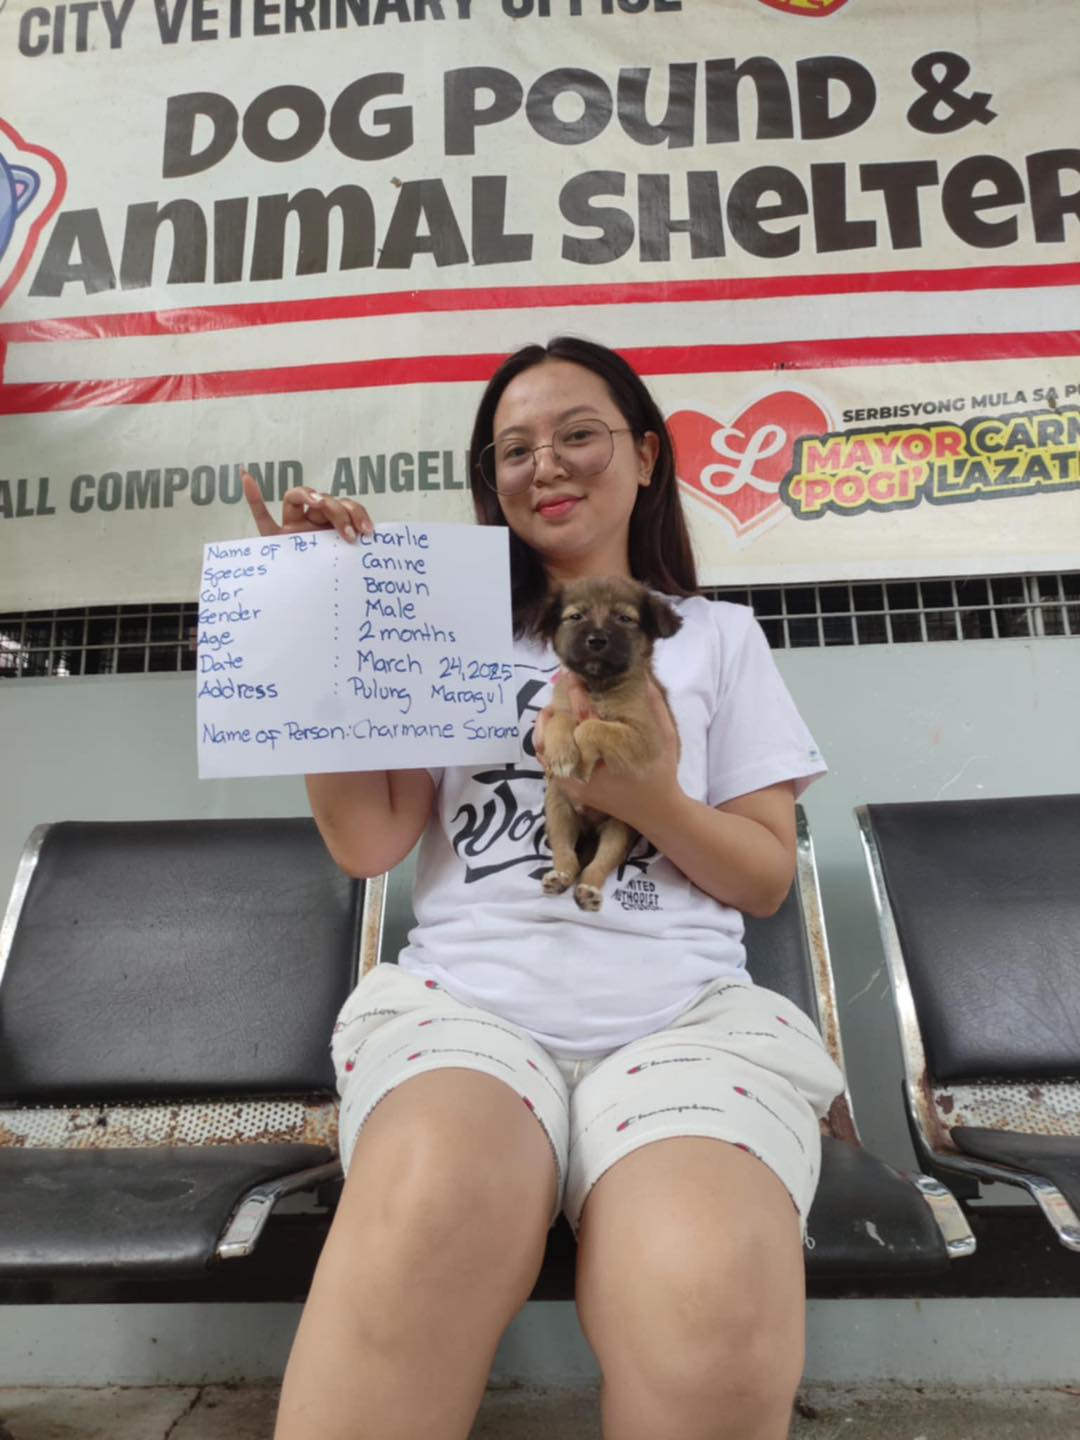 CITY VETERINARY OFFICE
DOG POUND &
ANIMAL SHELTER
ALL COMPOUND, ANGEL
SERBISYONG MULA SA
MAYOR CARM
'POGI' LAZAT
Name of Pet : Charlie
Species : Canine
Color : Brown
Gender : Male
Age : 2 months
Date : March 24, 2025
Address : Pulung Maragul
Name of Person: Charmane Soriano
UNITED
METHODIST
CHURCH
Champion
Champion
Champion
Champion